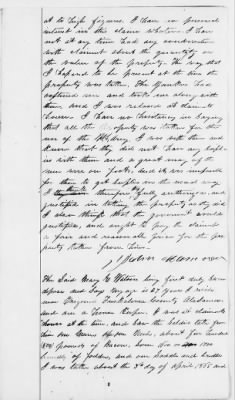 at to high figures. I have no personal
interest in the claim whatever. I have
not at any time had any conversation
with claimant about the quantity or
the value of the property. The way that
I happened to be present at the time the
property was taken. The Yankees had
captured me and took me along with
them, and I was released at claimants
house. I have no hesitancy in saying
that all this property was taken for the
use of the Army. I was with them and
know that they did not have any supplies
with them and a great many of the
men were on foot, and it was impossible
for them to get supplies on the road they
therefore fully authorized and
justified in taking the property as they did
I also think that the government would
justified, and ought to pay the claimant
a fair and reasonable price for the property
taken from him.
The Said Mary E. Watson being first duly sworn
deposes and Says My age is 27 years I reside
near Tuscaloosa County Alabama
and am a House Keeper. I was at claimants
house at the time, and saw the Soldiers take from
him one Horse, about five hundred
(500) pounds of Bacon,
bundles of fodder, and one Saddle and bridle
was taken about the 3rd day of April 1865 and